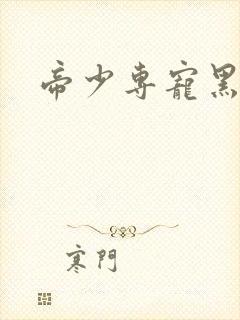 帝少専寵黑
寒門